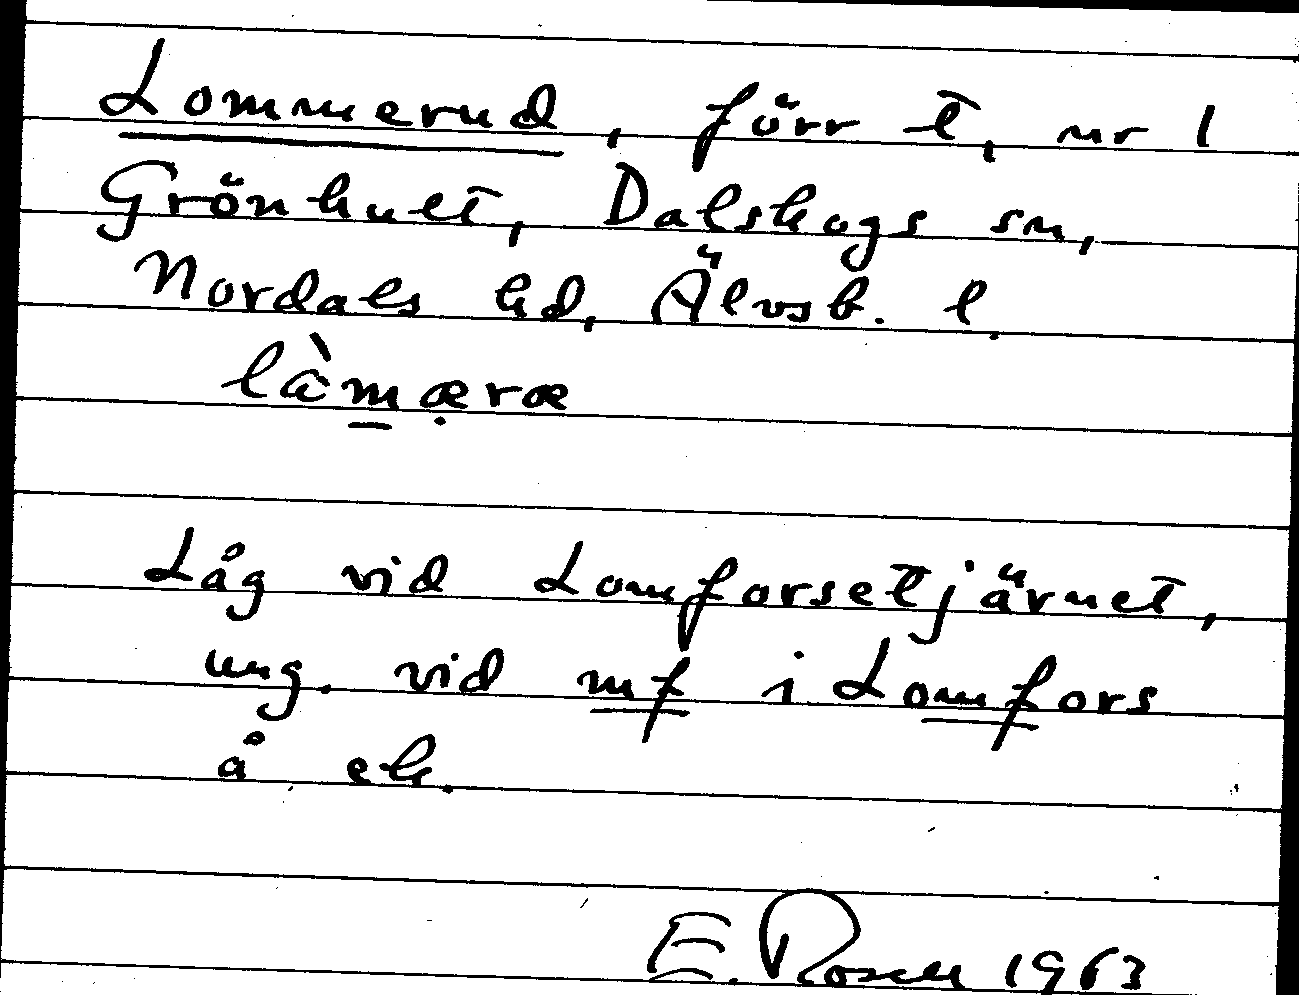 Lommerud, förr t, nr 1
Grönhult, Dalskogs sn,
Nordals hd, Älvsb. l.
làmærœ
Låg vid Lomforsetjärnet,
ung. vid mf i Lomfors
å ek.
E. Rosell 1963